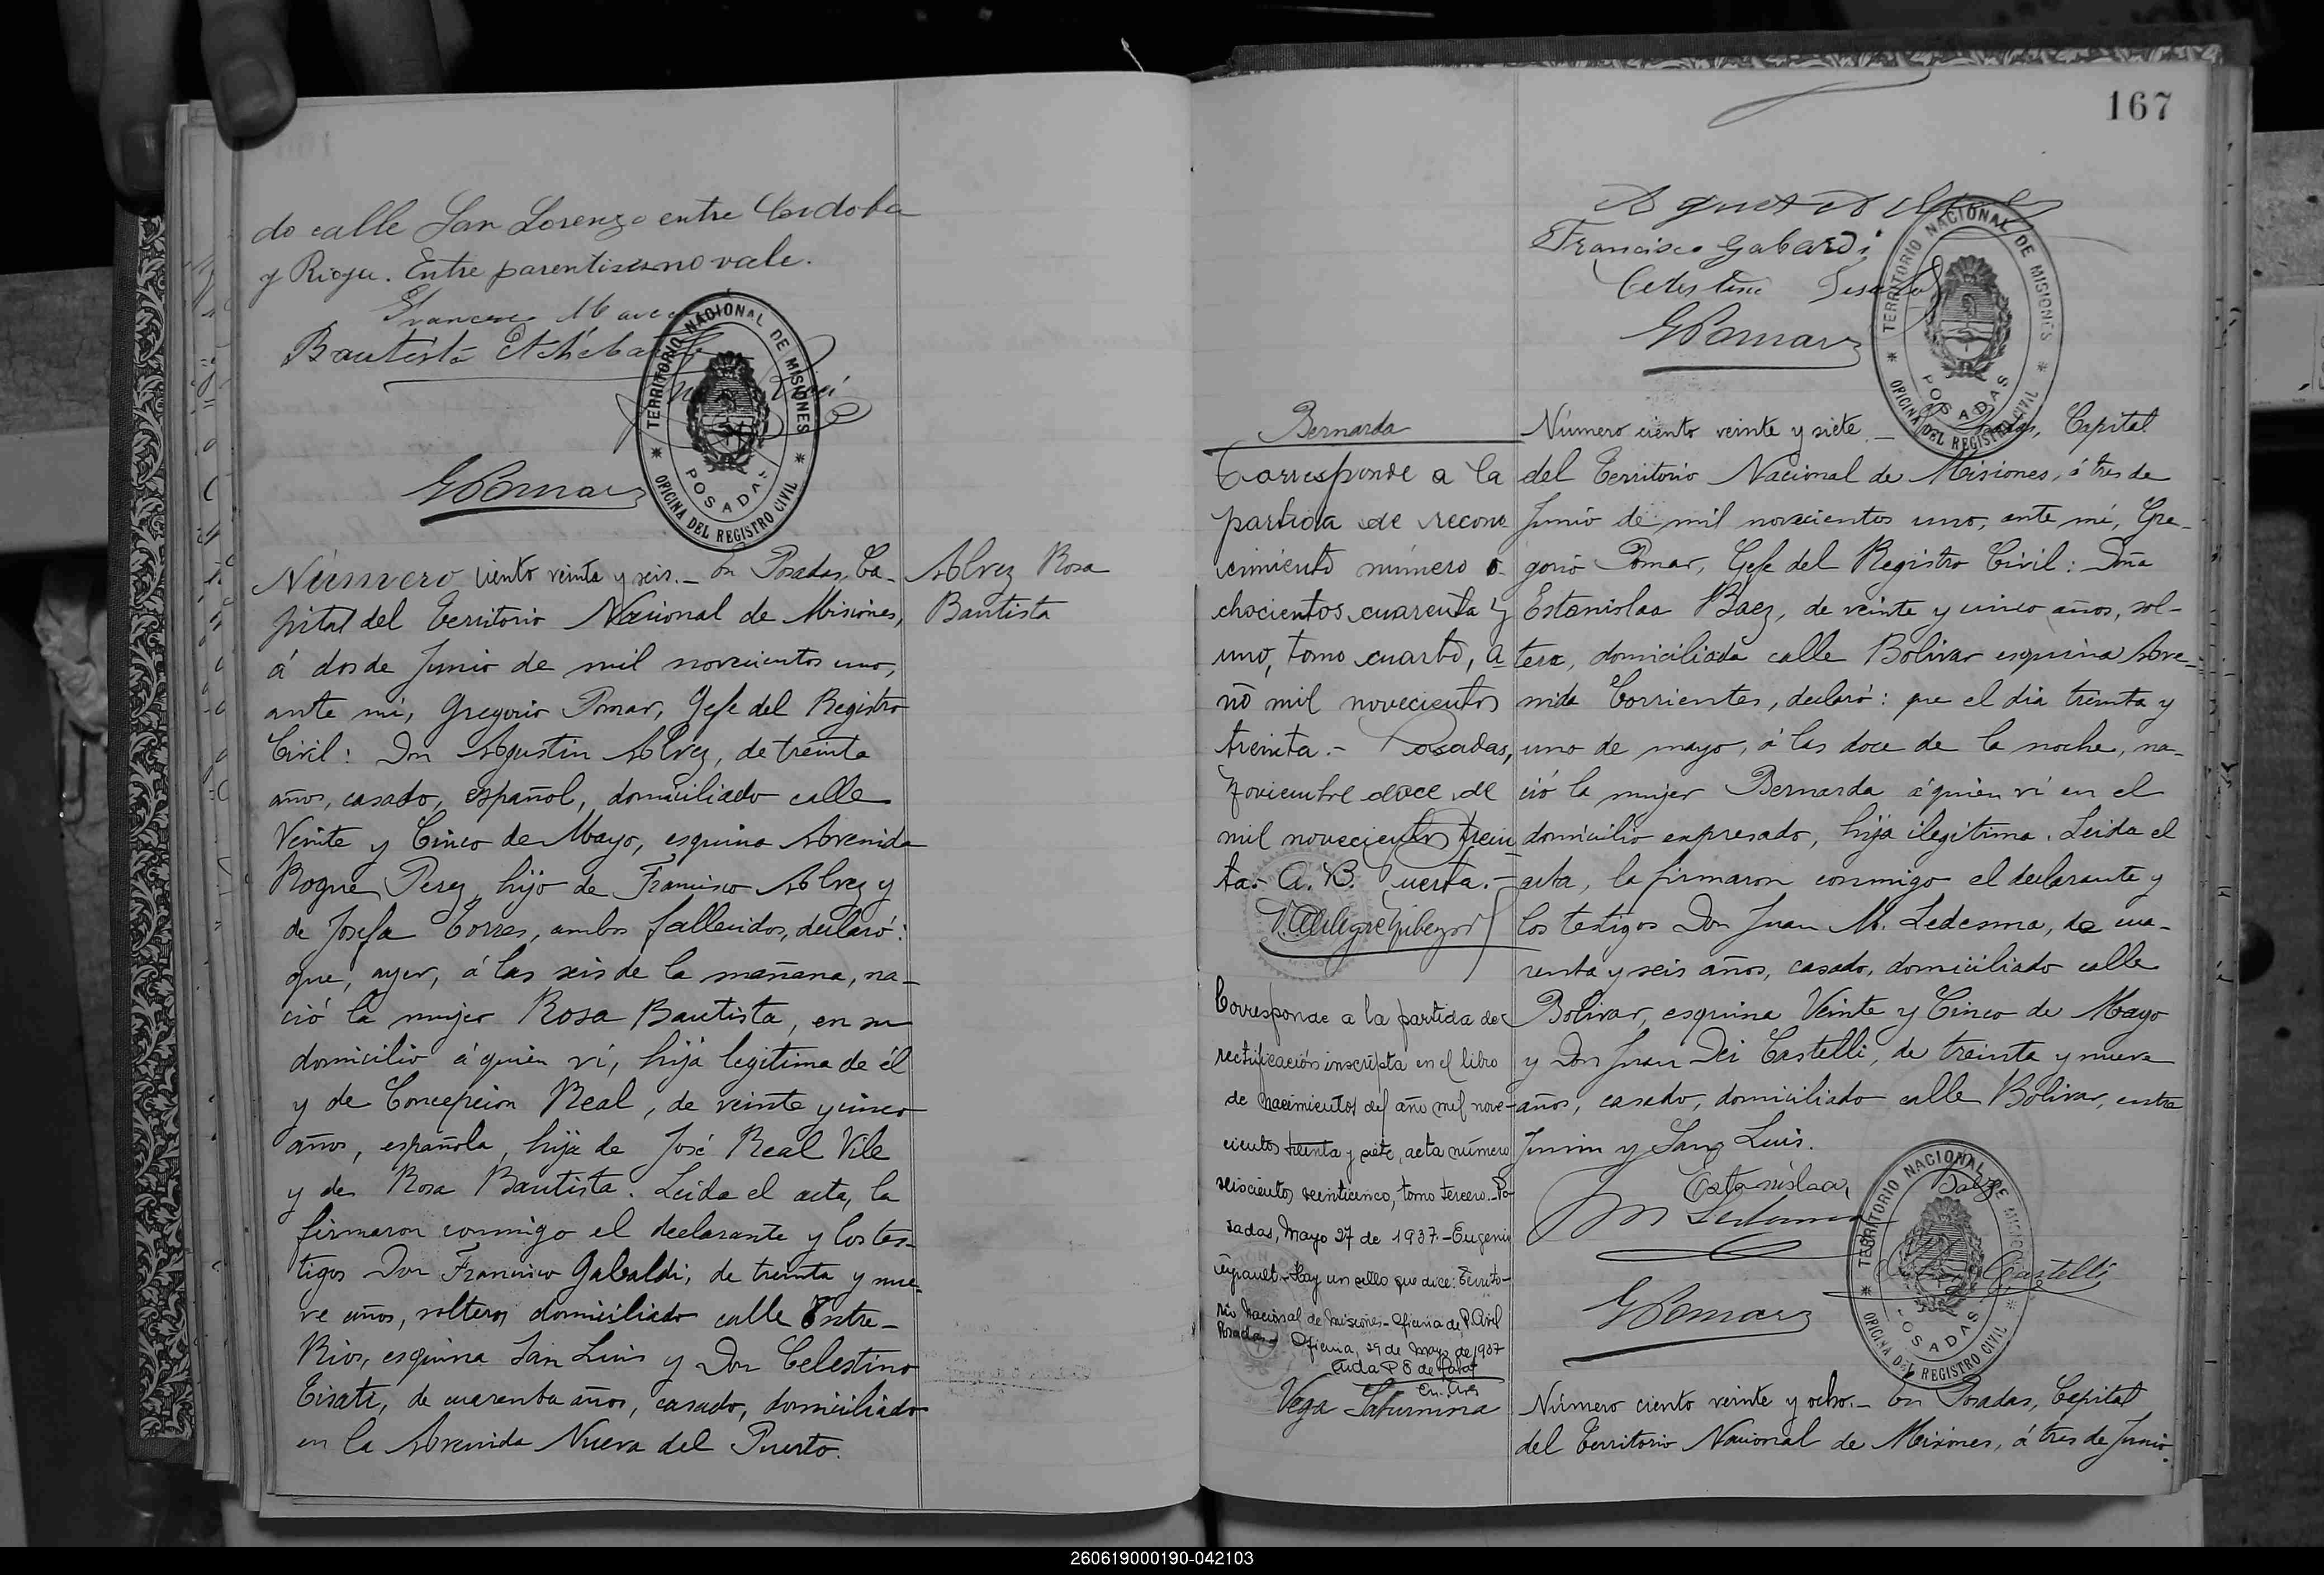 do calle San Lorenzo entre Cordoba
y Rioja. Entre parentisis no vale.
Bautista Etcheba
GPomar
TERRITORIO NACIONAL DE MISIONES
POSADAS
OFICINA DEL REGISTRO CIVIL
Alvez Rosa
Bautista
Número ciento veinte y seis._ En Posadas, Ca-
pital del Territorio Nacional de Misiones,
á dos de Junio de mil novecientos uno,
ante mí, Gregorio Pomar, Gefe del Registro
Civil: Don Agustin Alvez, de treinta
años, casado, español, domiciliado calle
Veinte y Cinco de Mayo, esquina Avenida
Roque Perez, hijo de Francisco Alvez y
de Josefa Torres, ambos fallecidos, declaró:
que, ayer, á las seis de la mañana, na-
ció la mujer Rosa Bautista, en su
domicilio á quién ví, hija legitima de él
y de Concepcion Real, de veinte y cinco
años, española, hija de José Real Vile
y de Rosa Bautista. Leida el acta, la
firmaron conmigo el declarante y los tes-
tigos Don Francisco Gabaldi, de treinta y nue-
ve años, soltero, domiciliado calle Entre-
Rios, esquina San Luis y Don Celestino
Tisati, de cuarenta años, casado, domiciliado
en la Avenida Nueva del Puerto.
167
Francisco Gabardi
Celestino
GPomar
TERRITORIO NACIONAL DE MISIONES
POSADAS
OFICINA DEL REGISTRO CIVIL
Bernarda
Corresponde a la
partida de recono
cimiento número o-
chocientos cuarenta y
uno, tomo cuarto, a
ño mil novecientos
treinta.- Posadas,
Noviembre doce de
mil novecientos trein
ta.- A. B. Puerta.-
Corresponde a la partida de
rectificación inscripta en el libro
de nacimientos del año mil nove-
cientos treinta y siete, acta número
seiscientos veinticinco, tomo tercero.-Po-
sadas, Mayo 27 de 1937.-Eugenio
Hay un sello que dice: Territo-
rio Nacional de Misiones-Oficina de R. Civil
Posadas- Oficina, 29 de Mayo de 1937
Vega Saturnina
Número ciento veinte y siete._ En Posadas, Capital
del Territorio Nacional de Misiones, á tres de
Junio de mil novecientos uno, ante mí, Gre-
gorio Pomar, Gefe del Registro Civil: Doña
Estanislaa Baez, de veinte y cinco años, sol-
tera, domiciliada calle Bolivar esquina Ave-
nida Corrientes, declaró: que el dia treinta y
uno de mayo, á las doce de la noche, na-
ció la mujer Bernarda á quién ví en el
domicilio expresado, hija ilegitima. Leida el
acta, la firmaron conmigo el declarante y
los testigos Don Juan M. Ledesma, de cua-
renta y seis años, casado, domiciliado calle
Bolivar, esquina Veinte y Cinco de Mayo
y Don Juan Dei Castelli, de treinta y nueve
años, casado, domiciliado calle Bolivar, entre
Junin y San Luis.
Estanislaa Baez
M Ledesma
Castelli
GPomar
TERRITORIO NACIONAL DE MISIONES
POSADAS
OFICINA DEL REGISTRO CIVIL
Número ciento veinte y ocho._ En Posadas, Capital
del Territorio Nacional de Misiones, á tres de Junio
260619000190-042103